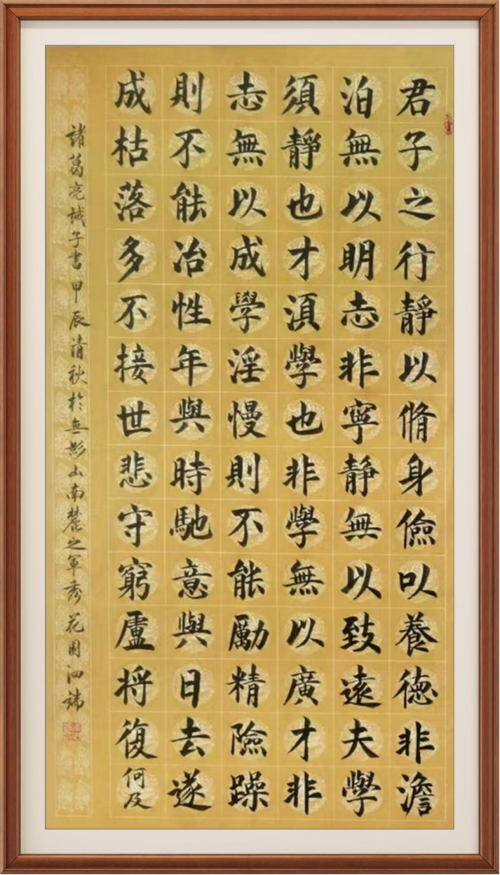 君子之行靜以脩身儉以養德非澹
泊無以明志非寧靜無以致遠夫學
須靜也才湏學也非學無以廣才非
志無以成學淫慢則不能勵精險躁
則不能冶性年與時馳意與日去遂
成枯落多不接世悲守窮盧將復何及
諸葛亮誡子書甲辰清秋於無影山南麓之軍秀花園泗